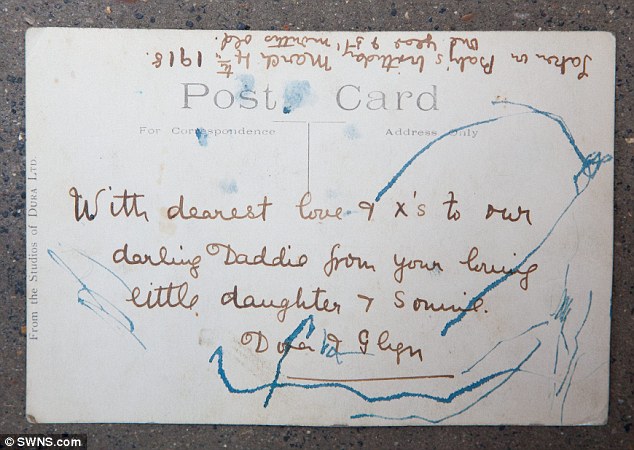 Taken on Baby's birthday March 4th, 1918.
year months old.
Post Card
For Correspondence
Address Only
With dearest love & x's to our
darling Daddie from your loving
little daughter & Sonnie.
Dora & Glyn
From the Studios of DURA LTD.
© SWNS.com